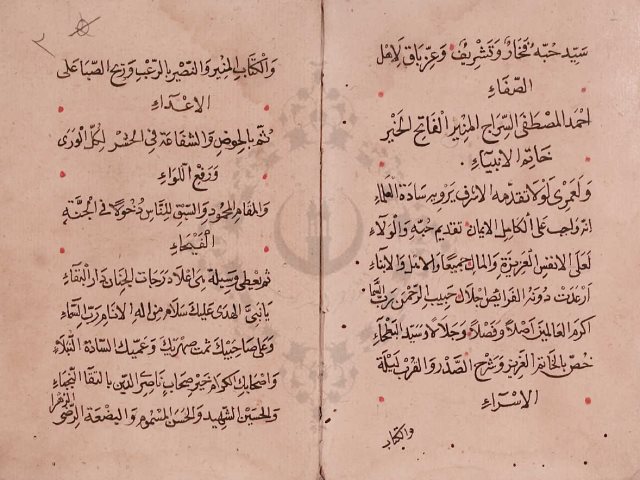 سيد حبه فخار وتشريف وعز باق لاهل
الصفاء
احمد المصطفى السراج المنير الفاتح الخير
خاتم الانبياء
ولعمري لولا تقدمه الاشرف يرويه سادة العلماء
انه واجب على الكامل الايمان تقديم حبه والولاء
لعلى الانفس العزيزة والمال جميعا والاهل والابناء
ارعدت دونه الفرائص اجلال حبيب الرحمن رب
اكرم العالمين اصلا وفضلا وجلالا وسيد البطحاء
خص بالخاتم العزيز وشرح الصدر والقرب ليلة
الاسراء
والكتاب
والكتاب المنير والنصر بالرعب وريح الصبا على
الاعداء
ثم بالحوض والشفاعة في الحشر لكل الورى
ورفع اللواء
والمقام المحمود والسبق للناس دخولا في الجنة
الفيحاء
ثم يعطى وسيلة هي اعلا درجات الجنان دار البقاء
يا نبي الهدى عليك سلام من اله الانام رب السماء
وعلى صاحبيك ثمت صهريك وعميك السادة النبلاء
واصحابك الكرام خير صحاب ناصر الدين بالقنا
والحسين الشهيد والحسن المسموم والبضعة الرضى
الزهرا